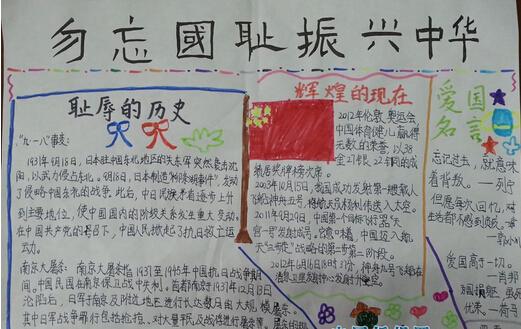 勿忘國耻振兴中华
耻辱的历史
"九一八"事变:
1931年9月18日,日本驻中国东北地区的关东军突然袭击沈
阳,以武力侵占东北。9月18日,日本制造"柳条湖事件",发动
了侵略中国东北的战争。此后,中日民族矛盾逐步上升
到主要地位,使中国国内的阶级关系发生重大变动。在
在中国共产党的召下,中国人民掀起了抗日救亡运
动。
南京大屠杀:南京大屠杀指1931至1945年中国抗日战争期
间,中国民国在南京保卫战中失利、首都南京1937年12月13日
沦陷后,日军于南京及附近地区进行长达数月的大规模屠杀。
其中日军战争罪行包括抢掠、对大量平民及战俘进行屠杀
辉煌的现在
2012年伦敦奥运会
中国体育健儿赢得
无数的荣誉,以38
金27银22铜的成
绩居奖牌榜次席。
2003年10月15日,我国成功发射第一艘载人
飞船神舟五号,杨利伟
2011年9月29日,中国第一个目标飞行器"天
宫一号"发射成功。它意味着,中国迈入航
天"三步走"战略的第二步第二阶段。
2012年6月16日18时37分,神舟九号飞船在
酒泉卫星发射中心发射升空。
爱国
名言
忘记过去,就意味
着背叛。——列宁
但愿每次回忆,对
生活都不感到
——郭小川
爱国高于一切。
——肖邦